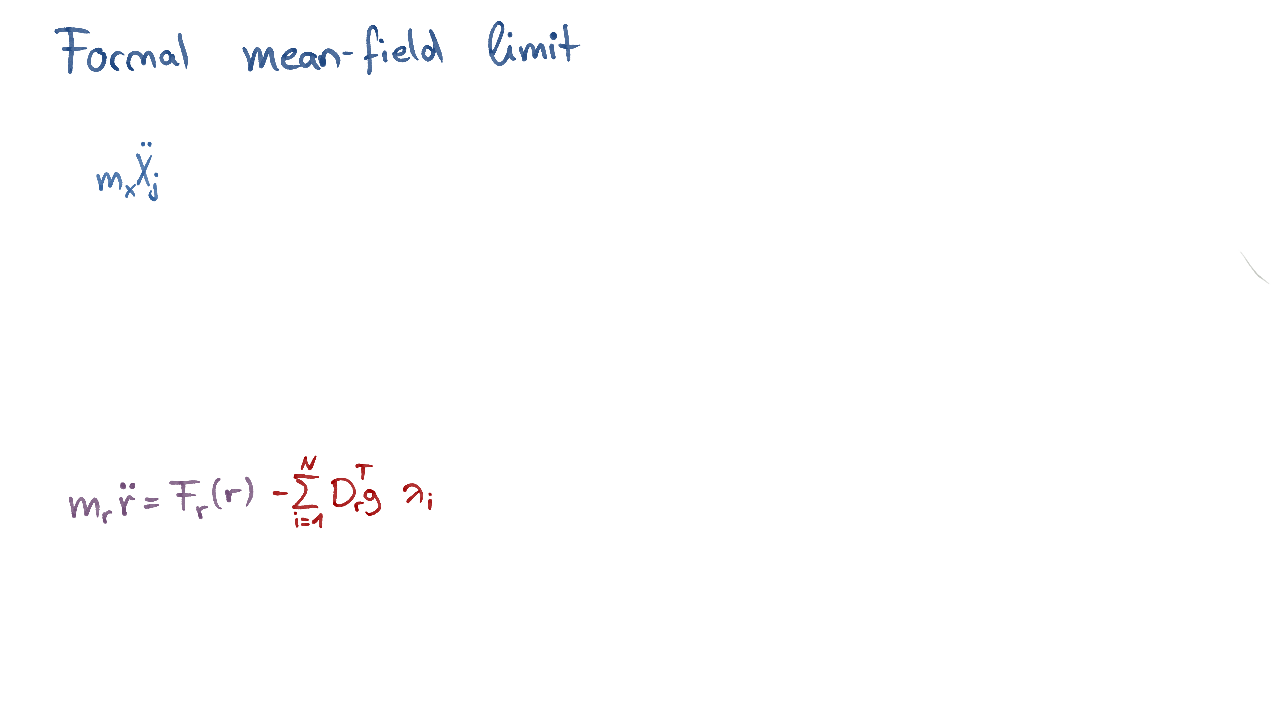 Formal mean-field limit
mₓẌⱼ
mᵣr̈ = Fᵣ(r) - ∑ᵢ₌₁ᴺ Dᵣᵀg λᵢ